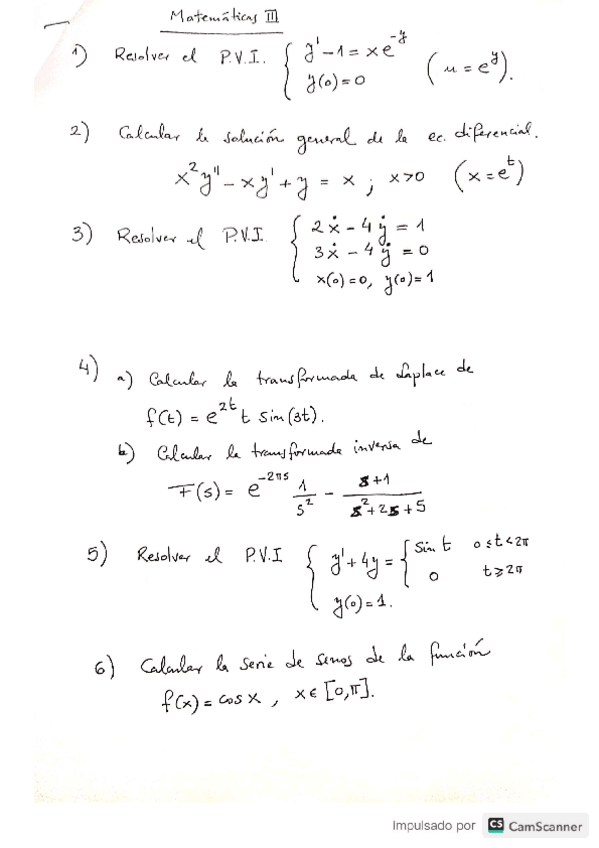 Matemáticas III
1) Resolver el P.V.I. { y' - 1 = x e^{-y} (u = e^y).
y(0) = 0
2) Calcular la solución general de la ec. diferencial.
x^2 y'' - x y' + y = x ; x > 0 (x = e^t)
3) Resolver el P.V.I. { 2ẋ - 4ẏ = 1
3ẋ - 4ẏ = 0
x(0) = 0, y(0) = 1
4) a) Calcular la transformada de Laplace de
f(t) = e^{2t} t sin(3t).
b) Calcular la transformada inversa de
F(s) = e^{-2πs} 1/s^2 - (s+1)/(s^2+2s+5)
5) Resolver el P.V.I { y' + 4y = { sin t 0 ≤ t < 2π
0 t ≥ 2π
y(0) = 1.
6) Calcular la serie de senos de la función
f(x) = cos x , x ∈ [0, π].
Impulsado por CS CamScanner